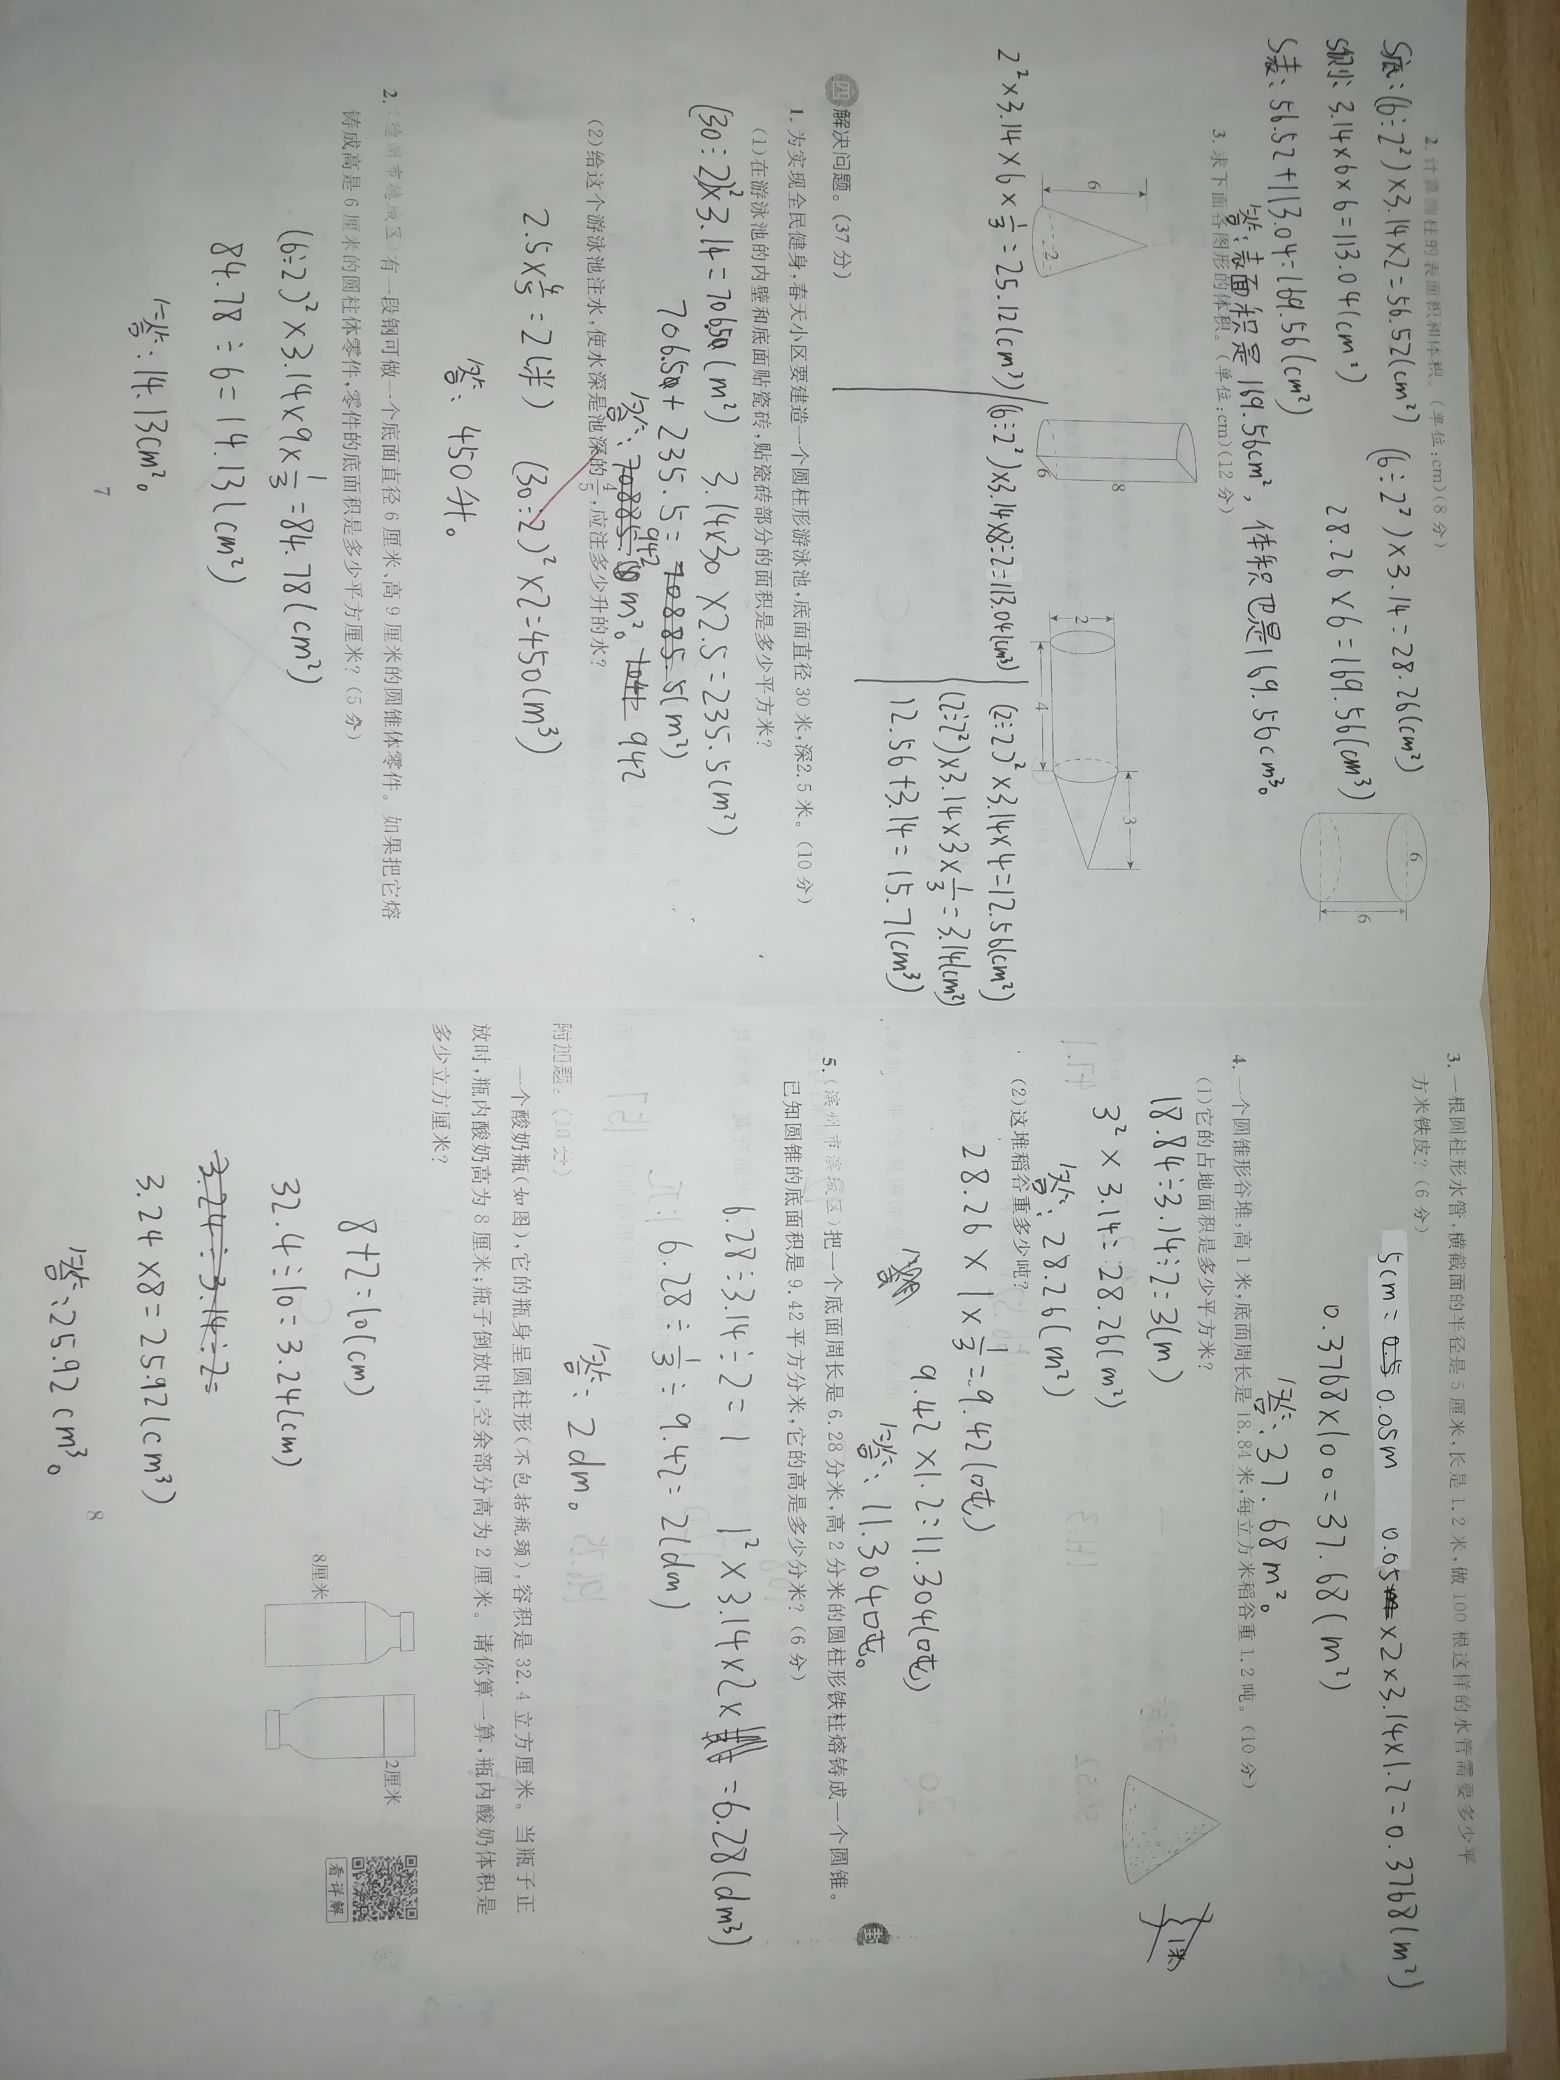 2. 计算圆柱的表面积和体积。(单位:cm)(8分)
S底:(6÷2²)×3.14×2=56.52(cm²) (6÷2²)×3.14=28.26(cm²)
S侧: 3.14×6×6=113.04(cm²) 28.26×6=169.56(cm³)
S表: 56.52+113.04=169.56(cm²)
答:表面积是169.56cm²,体积也是169.56cm³。
6
6
3. 求下面各图形的体积。(单位:cm)(12分)
6
2
8
6
2
4
3
2²×3.14×6×1/3=25.12(cm²)
(6÷2²)×3.14×8÷2=113.04(cm³)
(2÷2)²×3.14×4=12.56(cm²)
(2÷2²)×3.14×3×1/3=3.14(cm²)
12.56+3.14=15.7(cm³)
四 解决问题。(37分)
1. 为实现全民健身,春天小区要建造一个圆柱形游泳池,底面直径30米,深2.5米。(10分)
(1)在游泳池的内壁和底面贴瓷砖,贴瓷砖部分的面积是多少平方米?
(30÷2)²×3.14=706.50(m²) 3.14×30×2.5=235.5(m²)
706.50+235.5=70885.5(m²)
942
答:70885.0m²。 7041 942
(2)给这个游泳池注水,使水深是池深的4/5,应注多少升的水?
2.5×4/5=2(米) (30÷2)²×2=450(m³)
答: 450升。
2. (德州市德城区)有一段钢可做一个底面直径6厘米、高9厘米的圆锥体零件。如果把它熔
铸成高是6厘米的圆柱体零件,零件的底面积是多少平方厘米?(5分)
(6÷2)²×3.14×9×1/3=84.78(cm²)
84.78÷6=14.13(cm²)
答:14.13cm²。
7
3. 一根圆柱形水管,横截面的半径是5厘米,长是1.2米,做100根这样的水管需要多少平
方米铁皮?(6分)
5cm=0.5 0.05m 0.05m×2×3.14×1.2=0.3768(m²)
0.3768×100=37.68(m²)
答:37.68m²。
4. 一个圆锥形谷堆,高1米,底面周长是18.84米,每立方米稻谷重1.2吨。(10分)
(1)它的占地面积是多少平方米?
18.84÷3.14÷2=3(m)
3²×3.14=28.26(m²)
答:28.26(m²)
1米
(2)这堆稻谷重多少吨?
28.26×1×1/3=9.42(吨)
9.42×1.2=11.304(吨)
答: 11.304吨。
5. (滨州市滨城区)把一个底面周长是6.28分米,高2分米的圆柱形铁柱熔铸成一个圆锥。
已知圆锥的底面积是9.42平方分米,它的高是多少分米?(6分)
6.28÷3.14÷2=1 1²×3.14×2×=6.28(dm³)
6.28÷1/3÷9.42=2(dm)
答:2dm。
附加题:(10分)
一个酸奶瓶(如图),它的瓶身呈圆柱形(不包括瓶颈),容积是32.4立方厘米。当瓶子正
放时,瓶内酸奶高为8厘米;瓶子倒放时,空余部分高为2厘米。请你算一算,瓶内酸奶体积是
多少立方厘米?
8+2=10(cm)
32.4÷10=3.24(cm)
3.24÷3.14÷2=
3.24×8=25.92(cm³)
答:25.92cm³。
8厘米
2厘米
看详解
8